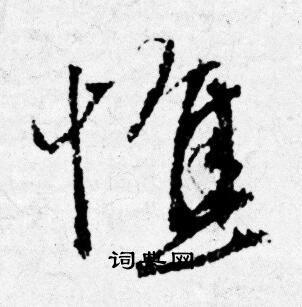 惟
词典网